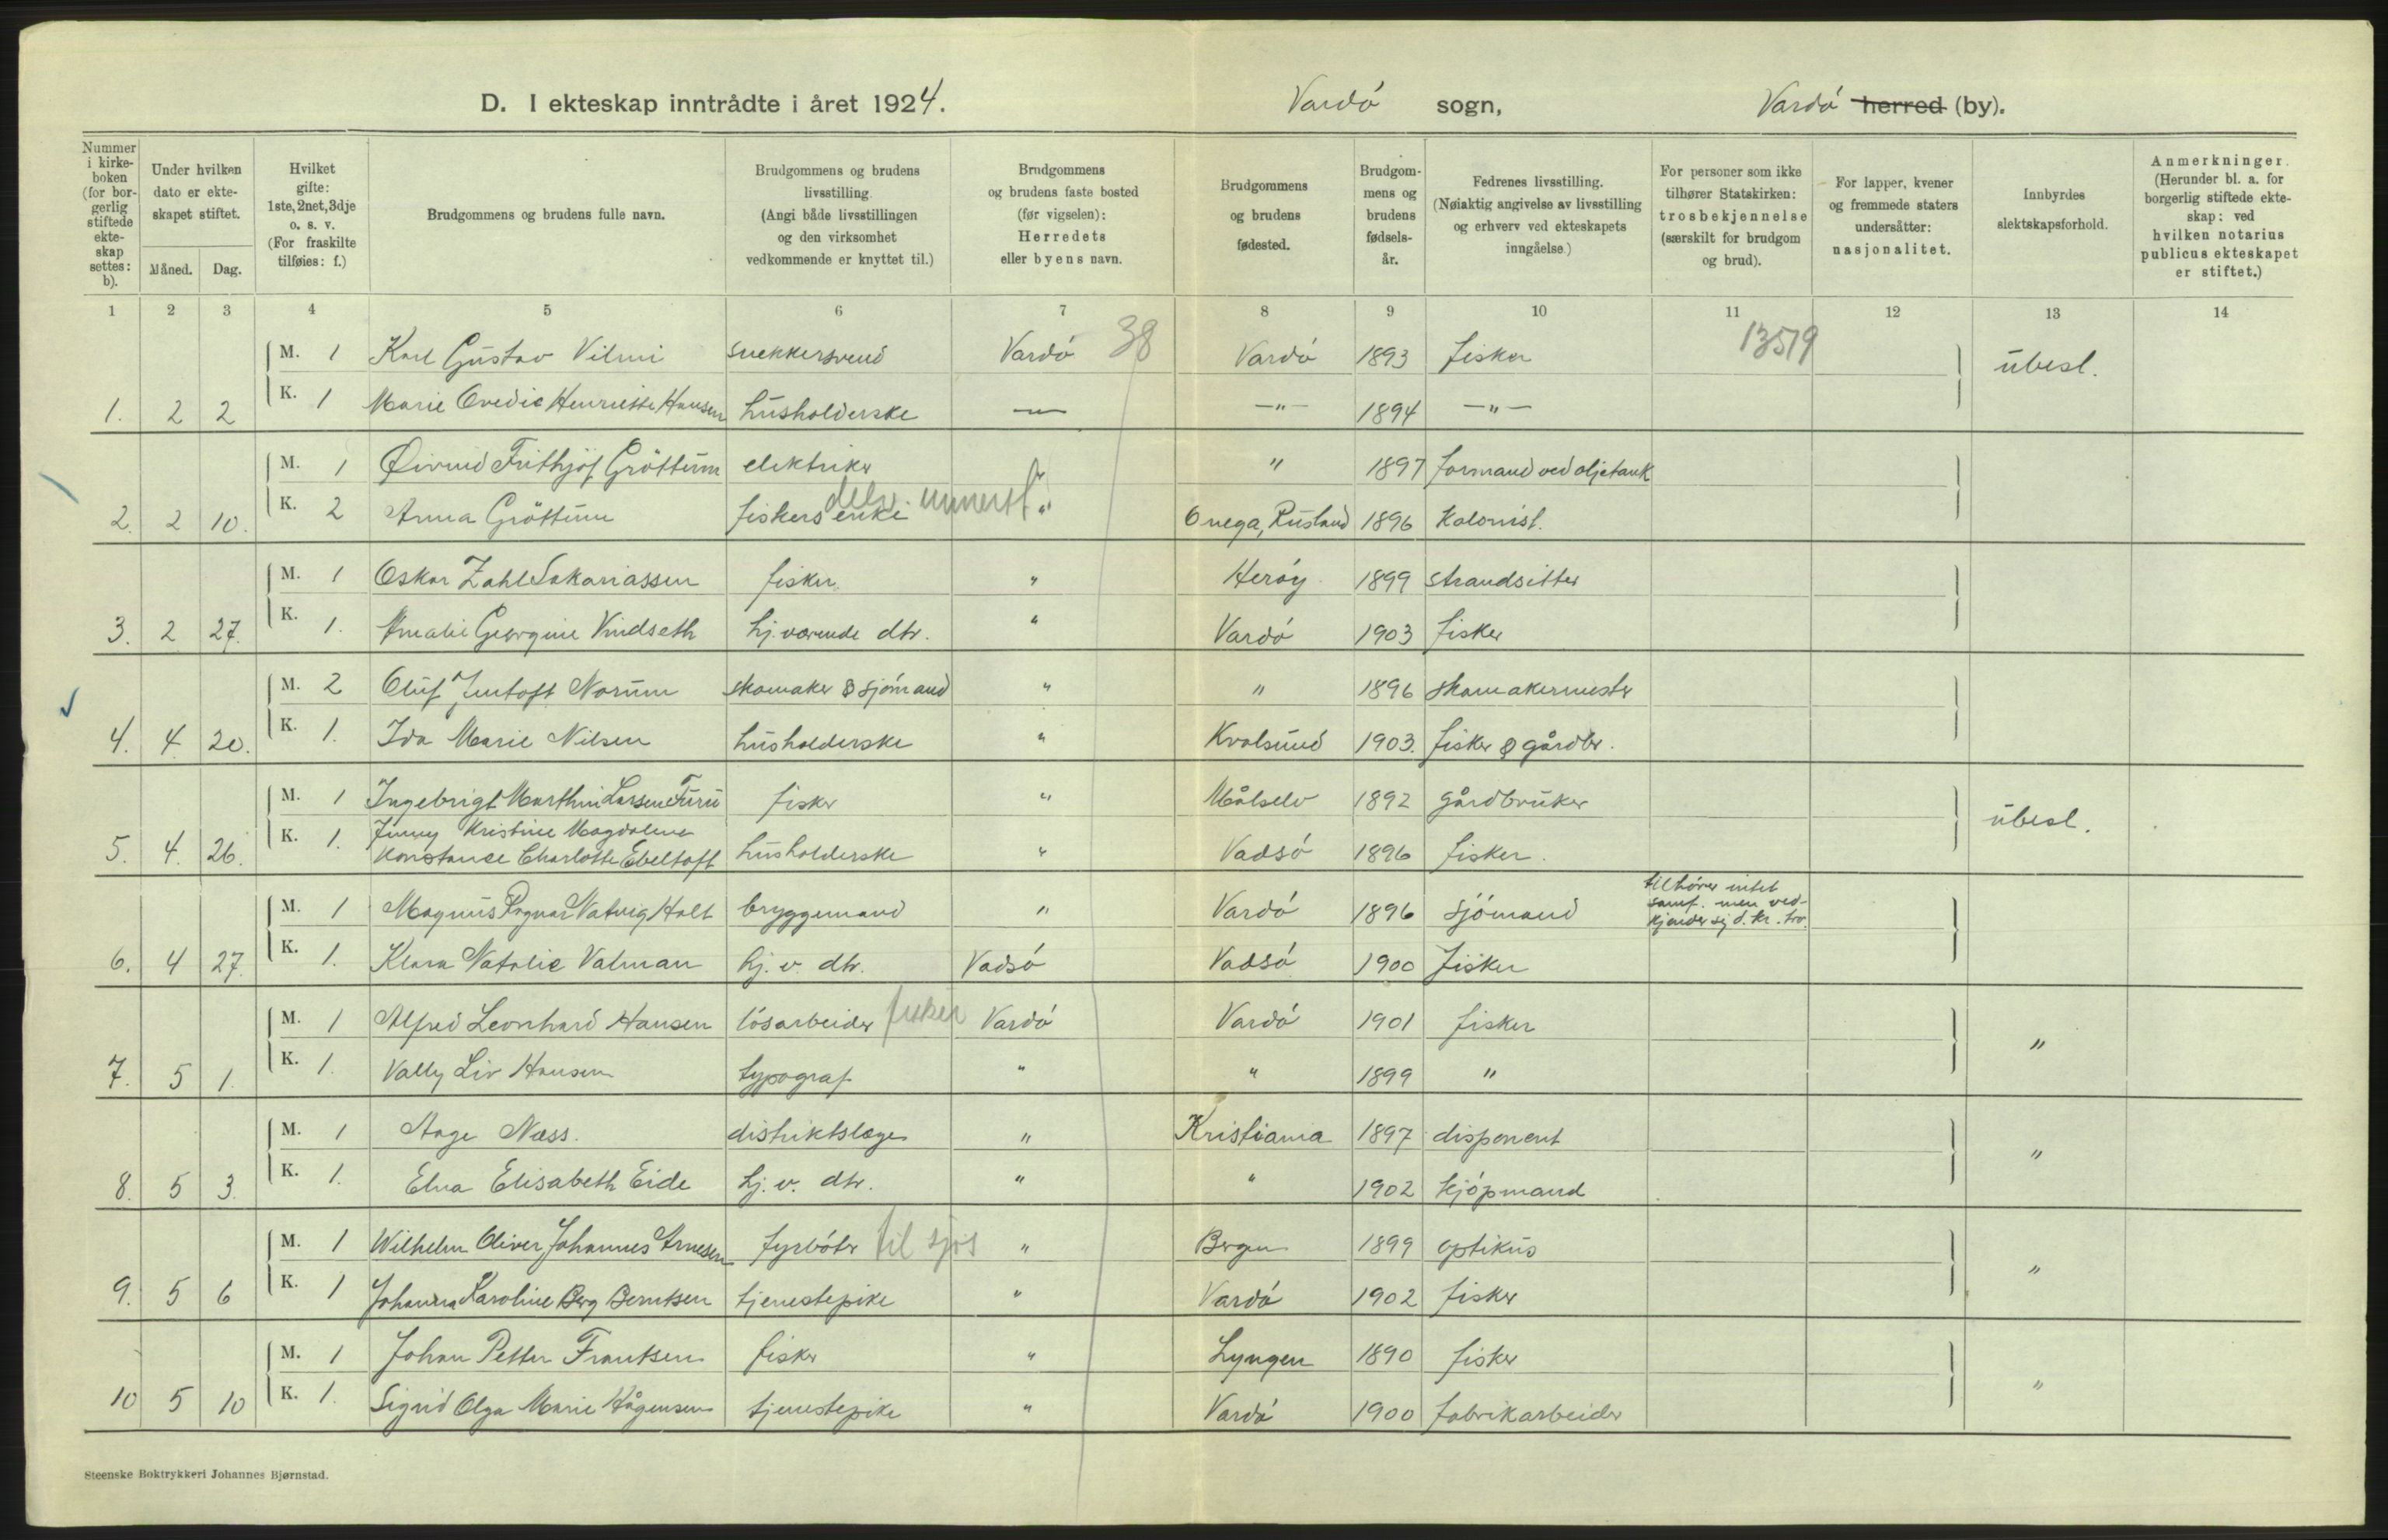 D. I ekteskap inntrådte i året 1924. Vardó sogn, Vardó herred (by).
Nummer i kirke-boken (for bor-gerlig stiftede ekte-skap settes: b).
Under hvilken dato er ekte-skapet stiftet.
Måned. Dag.
Hvilket gifte: 1ste, 2net, 3dje o. s. v. (For fraskilte tilføies: f.)
Brudgommens og brudens fulle navn.
Brudgommens og brudens livsstilling. (Angi både livsstillingen og den virksomhet vedkommende er knyttet til.)
Brudgommens og brudens faste bosted (før vigselen): Herredets eller byens navn.
Brudgommens og brudens fødested.
Brudgom-mens og brudens fødsels-år.
Fedrenes livsstilling. (Nøiaktig angivelse av livsstilling og erhverv ved ekteskapets inngåelse.)
For personer som ikke tilhører Statskirken: trosbekjennelse (særskilt for brudgom og brud).
For lapper, kvener og fremmede staters undersåtter: nasjonalitet.
Innbyrdes slektskapsforhold.
Anmerkninger. (Herunder bl. a. for borgerlig stiftede ekte-skap: ved hvilken notarius publicus ekteskapet er stiftet.)
1 2 3 4 5 6 7 8 9 10 11 12 13 14
M. 1 Karl Gustav Vilmi snekkersvend Vardó 38 Vardó 1893 fisker 13519 ubesl.
1. 2 2 K. 1 Marie Ovedie Henriette Hansen husholderske — —"— 1894 —"—
M. 1 Øivind Frithjof Gröttum elektriker " " 1897 formand ved oljetank
2. 2 10. K. 2 Anna Gröttum fiskers enke " Onega, Rusland 1896 Kolonist.
M. 1 Oskar Zahl Sakariassen fisker " Heróy 1899 strandsitter
3. 2 27. K. 1. Amalie Georgine Vindseth hj. værende dtr. " Vardó 1903 fisker
M. 2 Oluf Jentoft Norum skomaker & sjómand " " 1896 skomakermester
4. 4. 20. K. 1. Ida Marie Nilsen husholderske " Kvalsund 1903. fisker & gårdbr.
M. 1 Ingebrigt Marthin Larsen Furu fisker " Målselv 1892 gårdbruker ubesl.
5. 4. 26. K. 1. Jenny Kristine Magdalena
Konstance Charlotte Ebeltoft husholderske " Vadsó 1896 fisker.
M. 1 Magnus Ragnar Natvig Holt bryggemand " Vardó 1896 sjómand tilhører intet
samf. men ved-
kjender sig d. kr. tro.
6. 4 27. K. 1. Klara Natalie Valman hj. v. dtr. Vadsó Vadsó 1900 fisker
M. 1 Alfred Leonhard Hansen lósarbeider fisker Vardó Vardó 1901 fisker "
7. 5 1. K. 1. Vally Liv Hansen typograf " " 1899 "
M. 1 Aage Næss. distriktslæge " Kristiania 1897 disponent "
8. 5 3. K. 1. Elna Elisabeth Eide hj. v. dtr. " " 1902 kjópmand
M. 1 Wilhelm Oliver Johannes Arnesen fyrbóter til sjøs " Bergen 1899 optikus "
9. 5 6 K. 1 Johanna Karoline Berg Berntsen tjenestepike " Vardó 1902 fisker
M. 1 Johan Petter Frantsen fisker " Lyngen 1890 fisker "
10 5 10 K. 1. Sigrid Olga Marie Hågensen tjenestepike " Vardó 1900 fabrikarbeider
Steenske Boktrykkeri Johannes Bjørnstad.